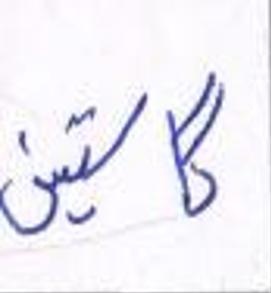 گا ستین